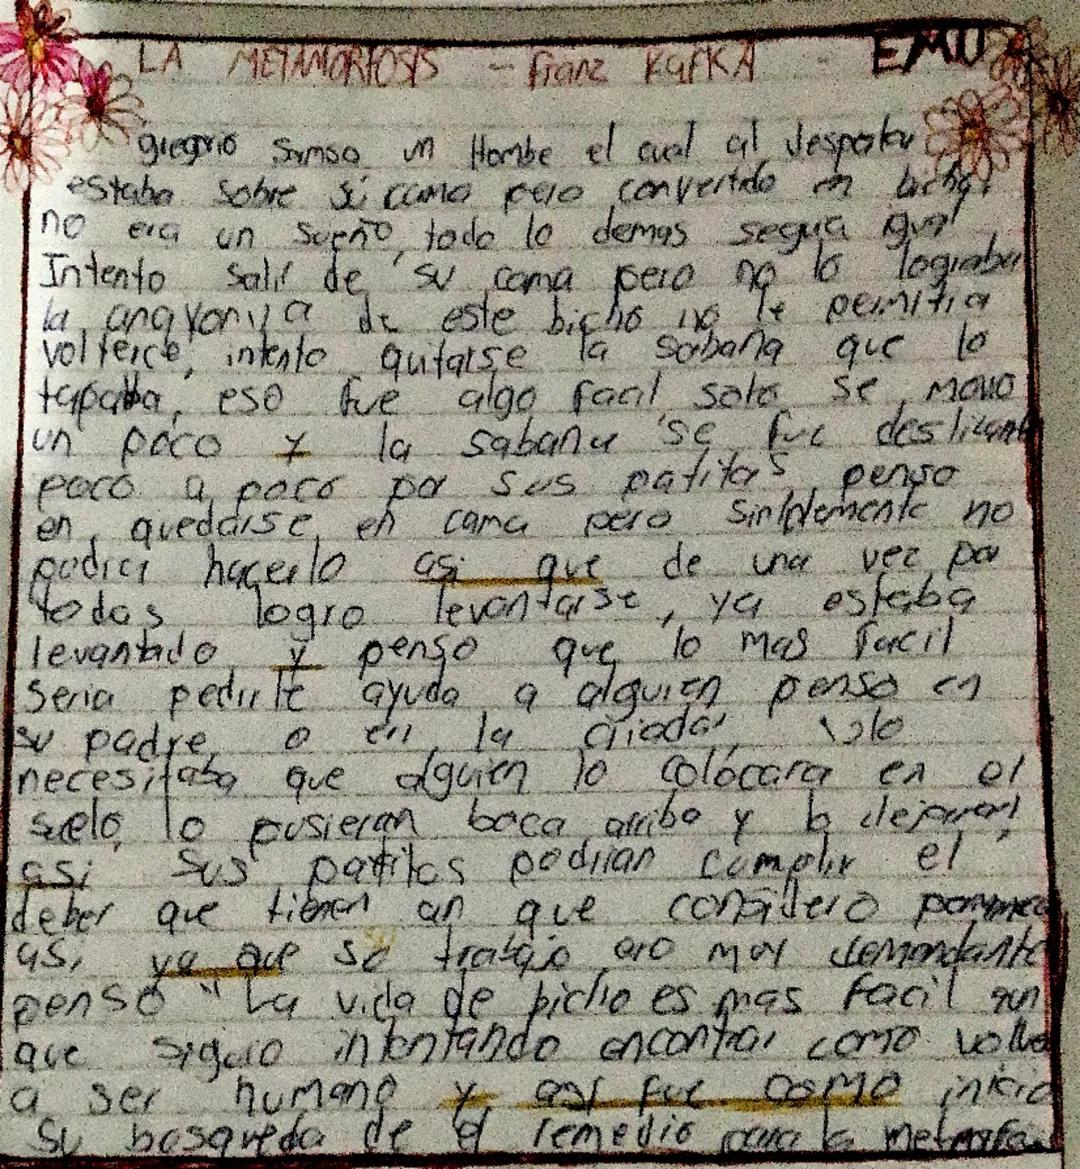 LA METAMORFOSIS - franz KafKA - EMU
gregorio Samsa un Hombe el cual al despertar
estaba sobre su cama pero convertido en bicho,
no era un sueño, todo lo demas seguia igual
Intento salir de su cama pero no lo lograba
la de este bicho no le permitia
volterce, intento quitarse la sabana que lo
tapaba, eso fue algo facil solo se movio
un poco y la sabana se fue deslizando
poco a poco por sus patitas, penso
en quedarse en cama pero simplemente no
podia hacerlo asi que de una vez por
todas logro levantarse, ya estaba
levantado y penso que lo mas facil
seria pedirle ayuda a alguien penso en
su padre, o en la criada, solo
necesitaba que alguien lo colocara en el
suelo, lo pusieran boca arriba y lo dejaran,
asi sus patitas podrian cumplir el
deber que tienen an que considero
asi, ya que su trabajo era muy demandante
penso "La vida de bicho es mas facil aun
que siguio intentando encontrar como volver
a ser humano y asi fue como inicio
su busqueda de el remedio para la